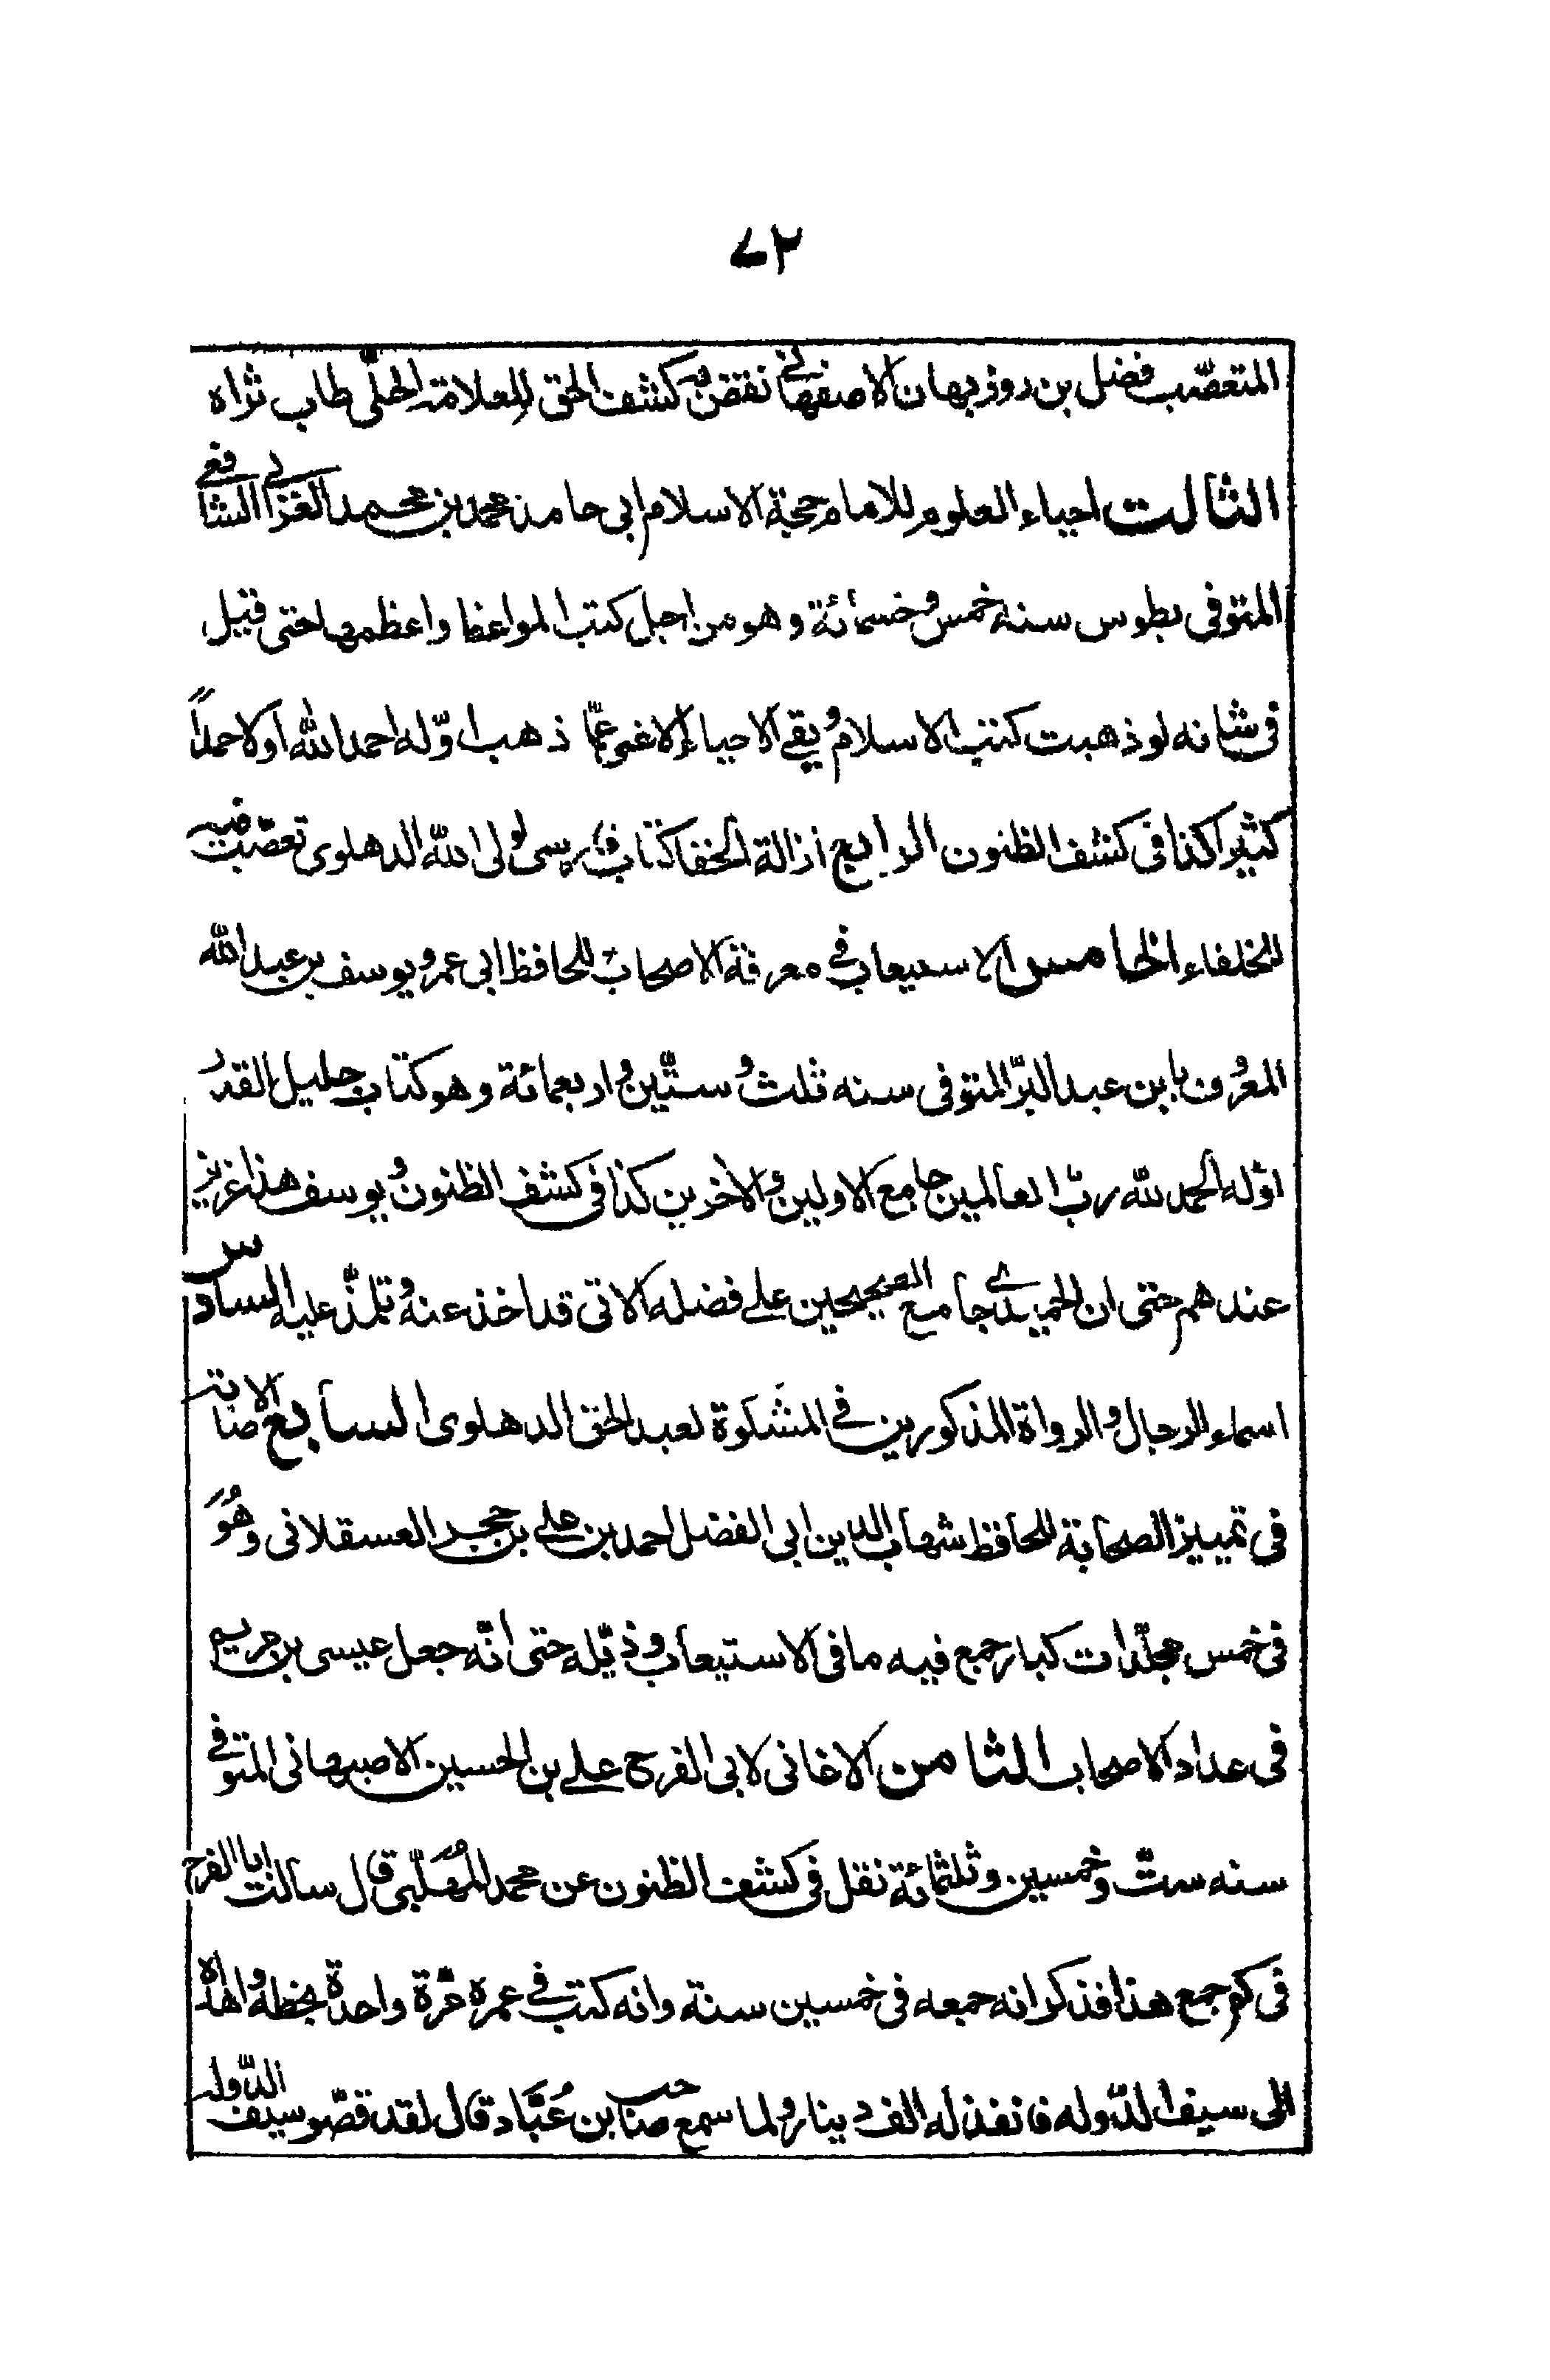 ٧٢
المتعصّب فضل بن روزبهان الاصفهانی نقض فیه كشف الحق للعلامة الحلّی طاب ثراه
الثالث احیاء العلوم للامام حجة الاسلام ابی حامد محمد بن محمد الغزالی الشافعی
المتوفی بطوس سنة خمس و خسمائة وهو من اجل كتب المواعظ واعظمها حتی قیل
فی شانه لو ذهبت كتب الاسلام و بقی الاحیاء لاغنی عمّا ذهب اوّله احمد الله اولا حمداً
كثیرا كذا فی كشف الظنون الرابع ازالة الخفا كتاب فارسی لولی الله الدهلوی تعصّب فیه
للخلفاء الخامس الاستیعاب فی معرفة الاصحاب للحافظ ابی عمرو یوسف بن عبد الله
المعروف بابن عبد البرّ المتوفی سنه ثلث و ستّین و اربعمائة وهو كتاب جلیل القدر
اوّله الحمد لله ربّ العالمین جامع الاولین و الاخرین كذا فی كشف الظنون و یوسف هذا عزیز
عندهم حتی ان الحمیدی جامع الصحیحین علی فضله الاتی قد اخذ عنه و تلمّذ علیه السادس
اسماء الرجال و الرواة المذكورین فی المشكوة لعبد الحق الدهلوی السابع الاصابة
فی تمییز الصحابة للحافظ شهاب الدین ابی الفضل احمد بن علی بن حجر العسقلانی وهُوَ
فی خمس مجلّدات كبار جمع فیه ما فی الاستیعاب و ذیّله حتی انّه جعل عیسی بن مریم
فی عداد الاصحاب الثامن الاغانی لابی الفرج علی بن الحسین الاصبهانی المتوفی
سنه ستّ و خمسین و ثلثمائة نقل فی كشف الظنون عن محمد المُهلّبی قال سالت ابا الفرج
فی كم جمع هذا فذكر انه جمعه فی خمسین سنة وانه كتب فی عمره مرّة واحدة بخطه و اهداه
الی سیف الدّوله فانفذ له الف دینار و لما سمع صاحب بن عُبَّاد قال لقد قصّر سیف الدّوله